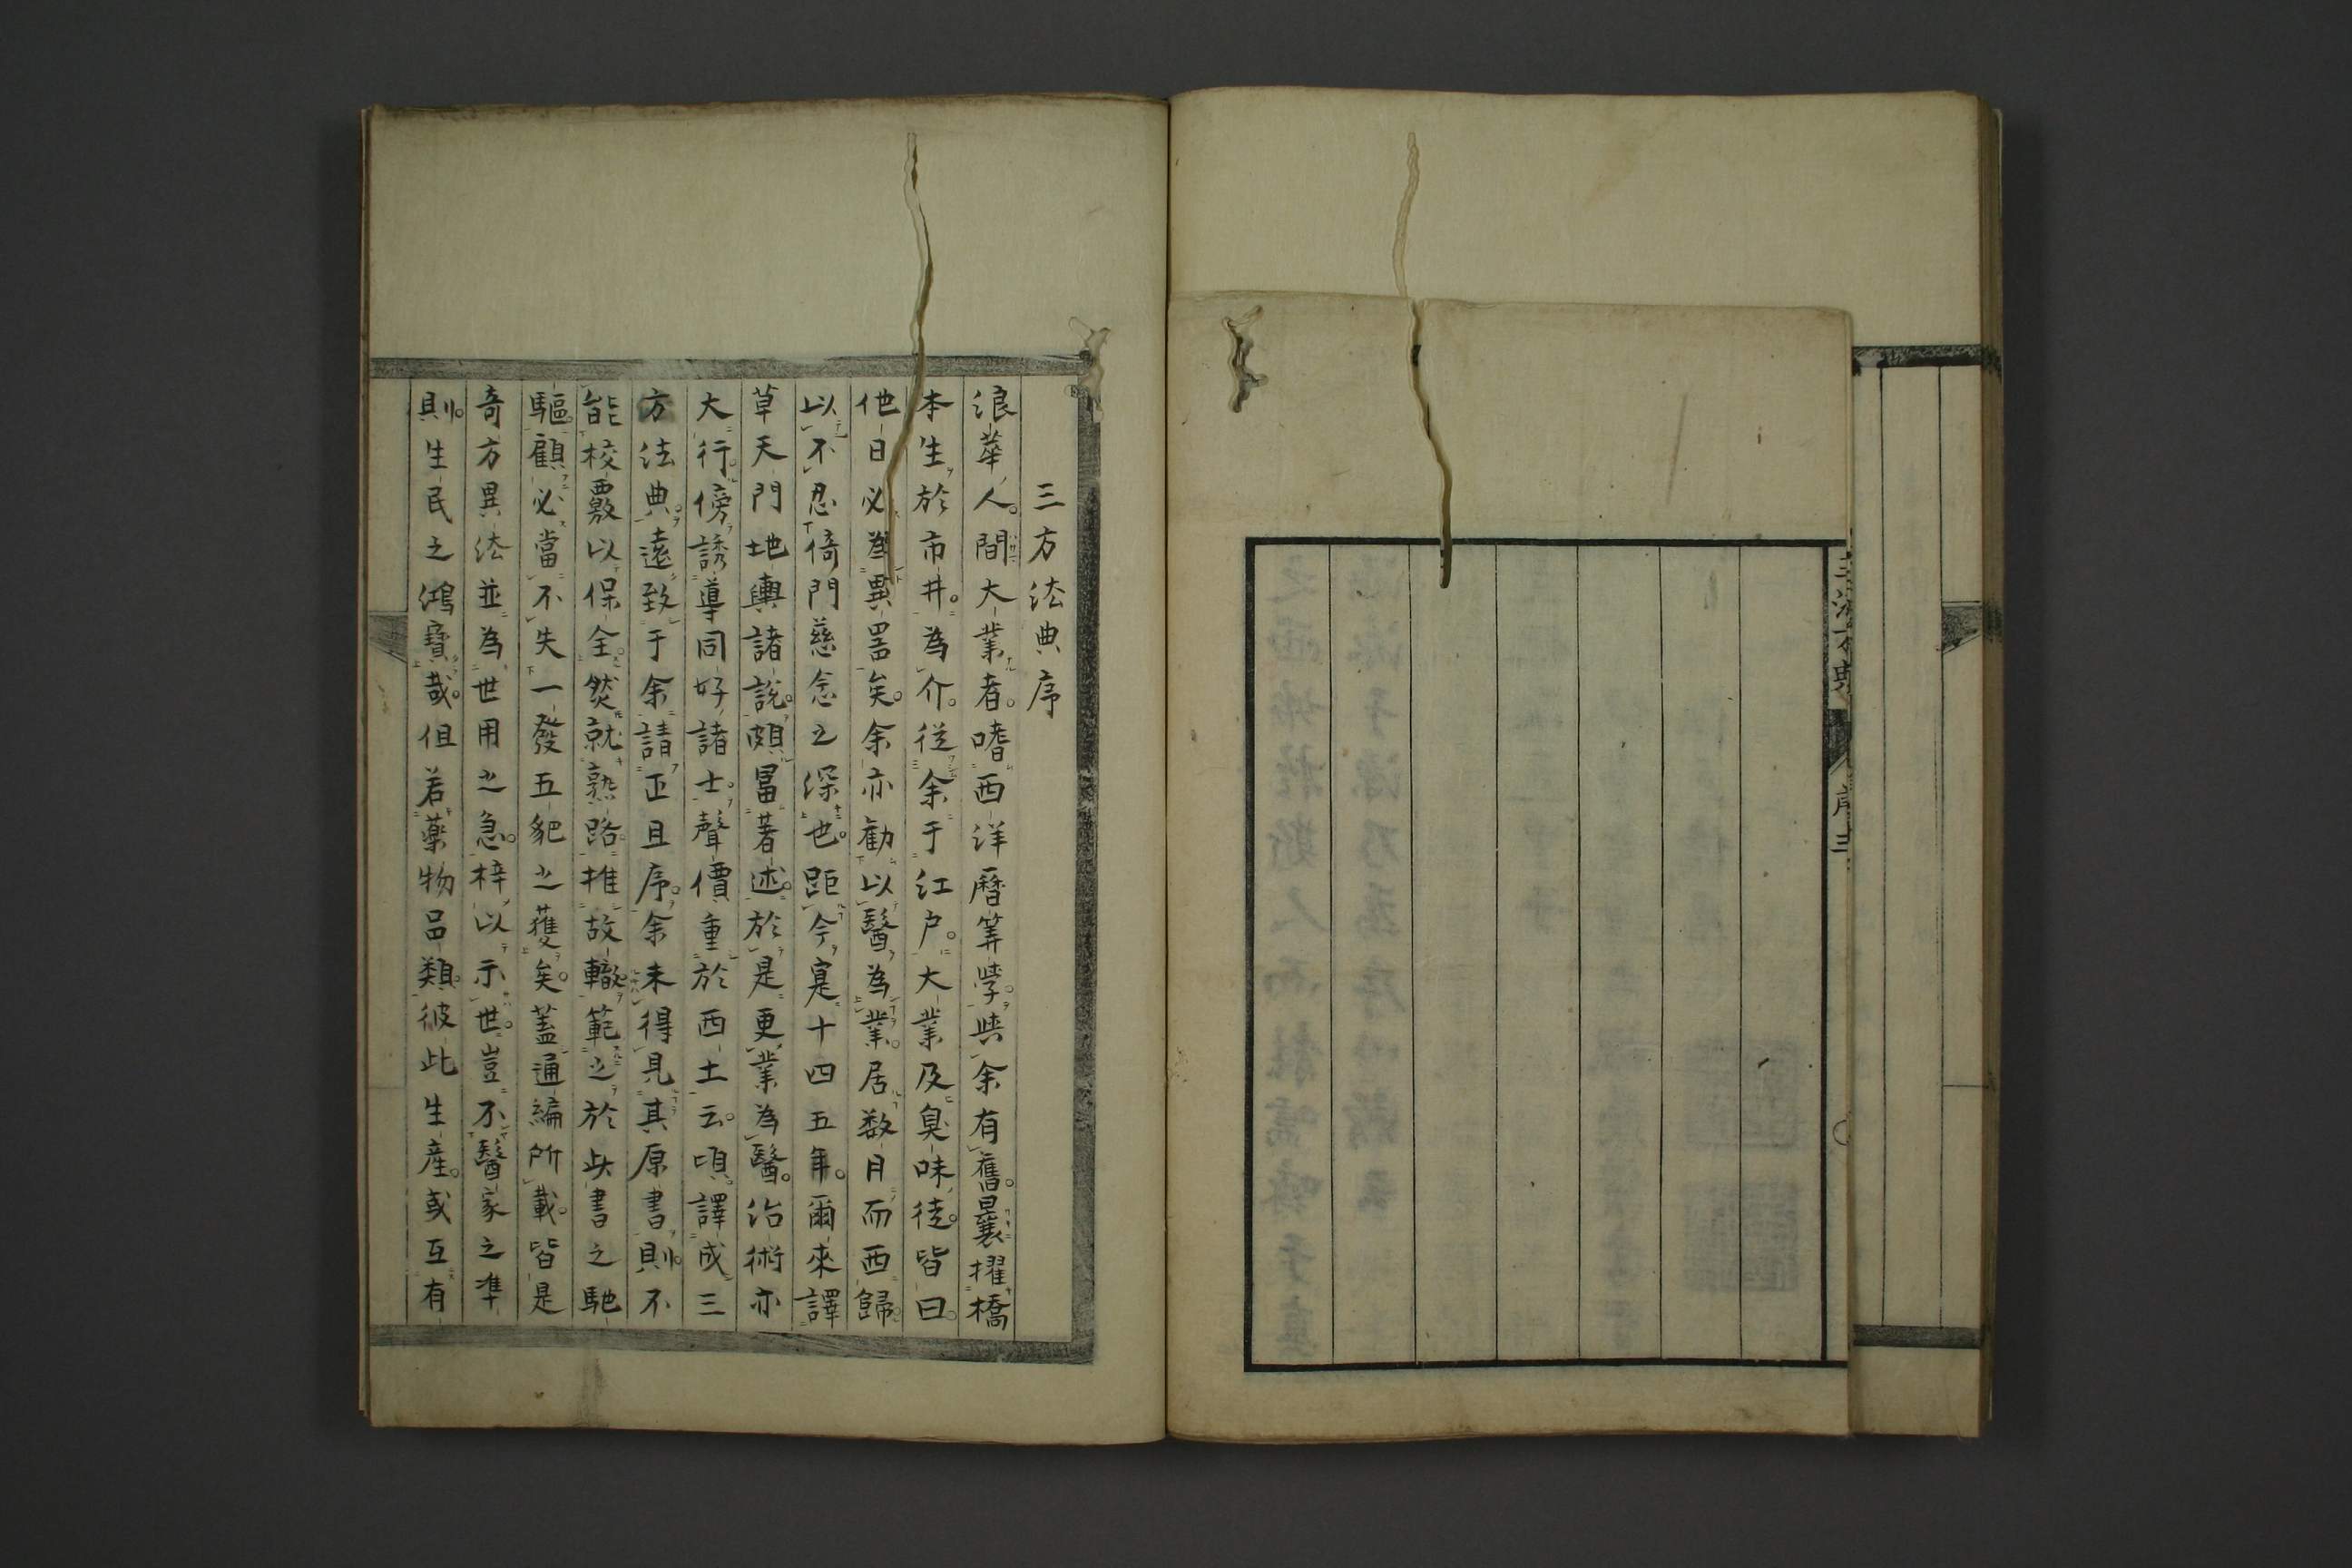 三方法典
序三
三方法典序
浪華人間大業者嗜西洋曆筭學與余有舊曩擢橋
本生於市井為介從余于江戶大業及臭味徒皆曰
他日必為異器矣余亦勸以醫為業居数月而西歸
以不忍倚門慈念之深也距今寔十四五年爾來譯
草天門地輿諸說頗富著述於是更業為醫治術亦
大行傍誘導同好諸士聲價重於西土云頃譯成三
方法典遠致于余請正且序余未得見其原書則不
能校覈以保全然就熟路推故轍範之於此書之馳
驅顧必當不失一發五豝之獲矣蓋通編所載皆是
奇方異法並為世用之急梓以示世豈不醫家之準
則生民之鴻寶哉但若藥物品類彼此生產或互有